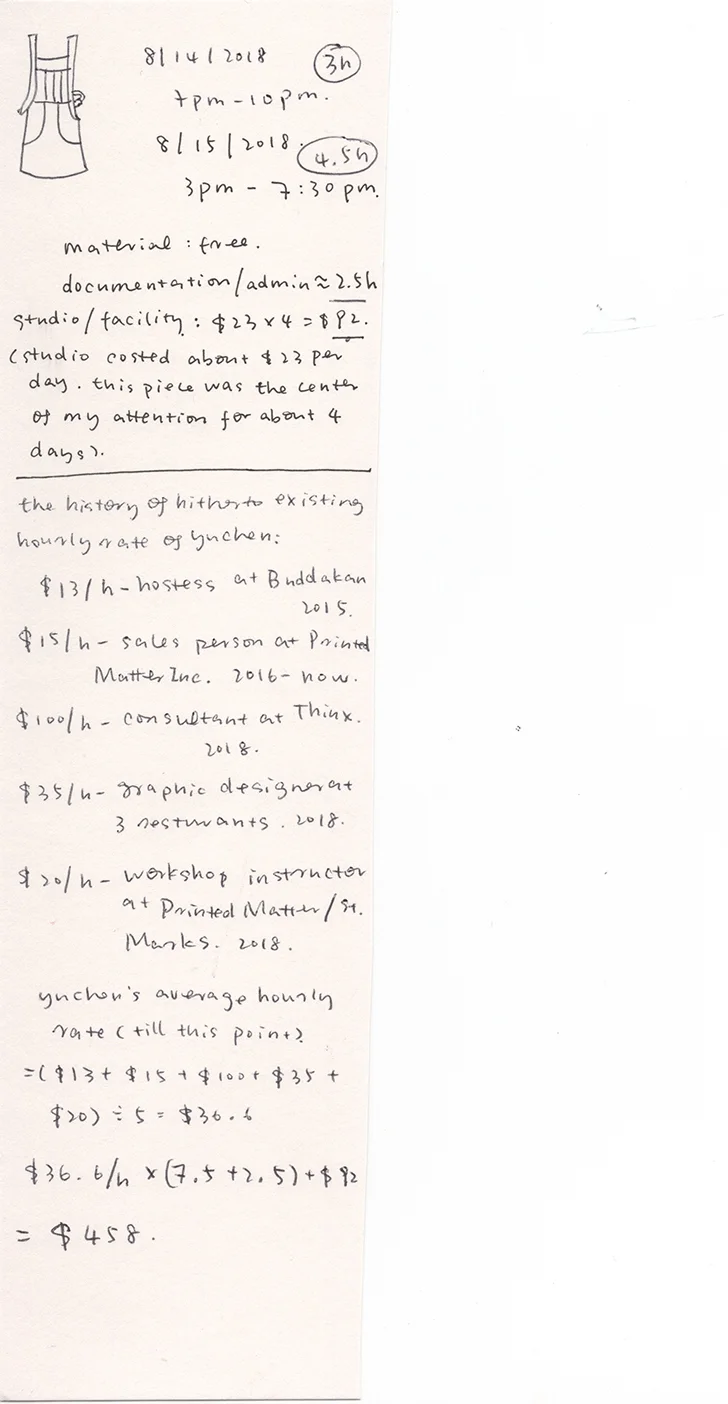 8/14/2018
3h
7pm-10pm.
8/15/2018.
4.5h
3pm - 7:30pm.
material : free.
documentation/admin≈2.5h
studio/facility: $23×4=$92.
(studio costed about $23 per
day. this piece was the center
of my attention for about 4
days).
the history of hitherto existing
hourly rate of yuchen:
$13/h-hostess at Buddakan
2015.
$15/h- sales person at Printed
Matter Inc. 2016- now.
$100/h - consultant at Thinx.
2018.
$35/h- graphic designer at
3 resturants. 2018.
$20/h- workshop instructor
at Printed Matter/St.
Marks. 2018.
yuchen's average hourly
rate (till this point)
=($13+ $15 + $100+ $35 +
$20) ÷ 5 = $36.6
$36.6/h ×(7.5+2.5)+$92
= $458.